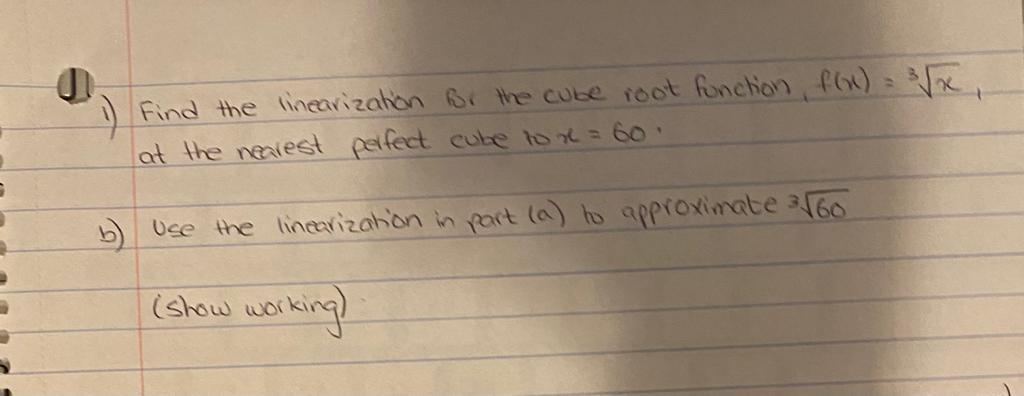 1)
i) Find the linearization for the cube root function, f(x) = ∛x,
at the nearest perfect cube to x = 60.
b) Use the linearization in part (a) to approximate ∛60
(show working)